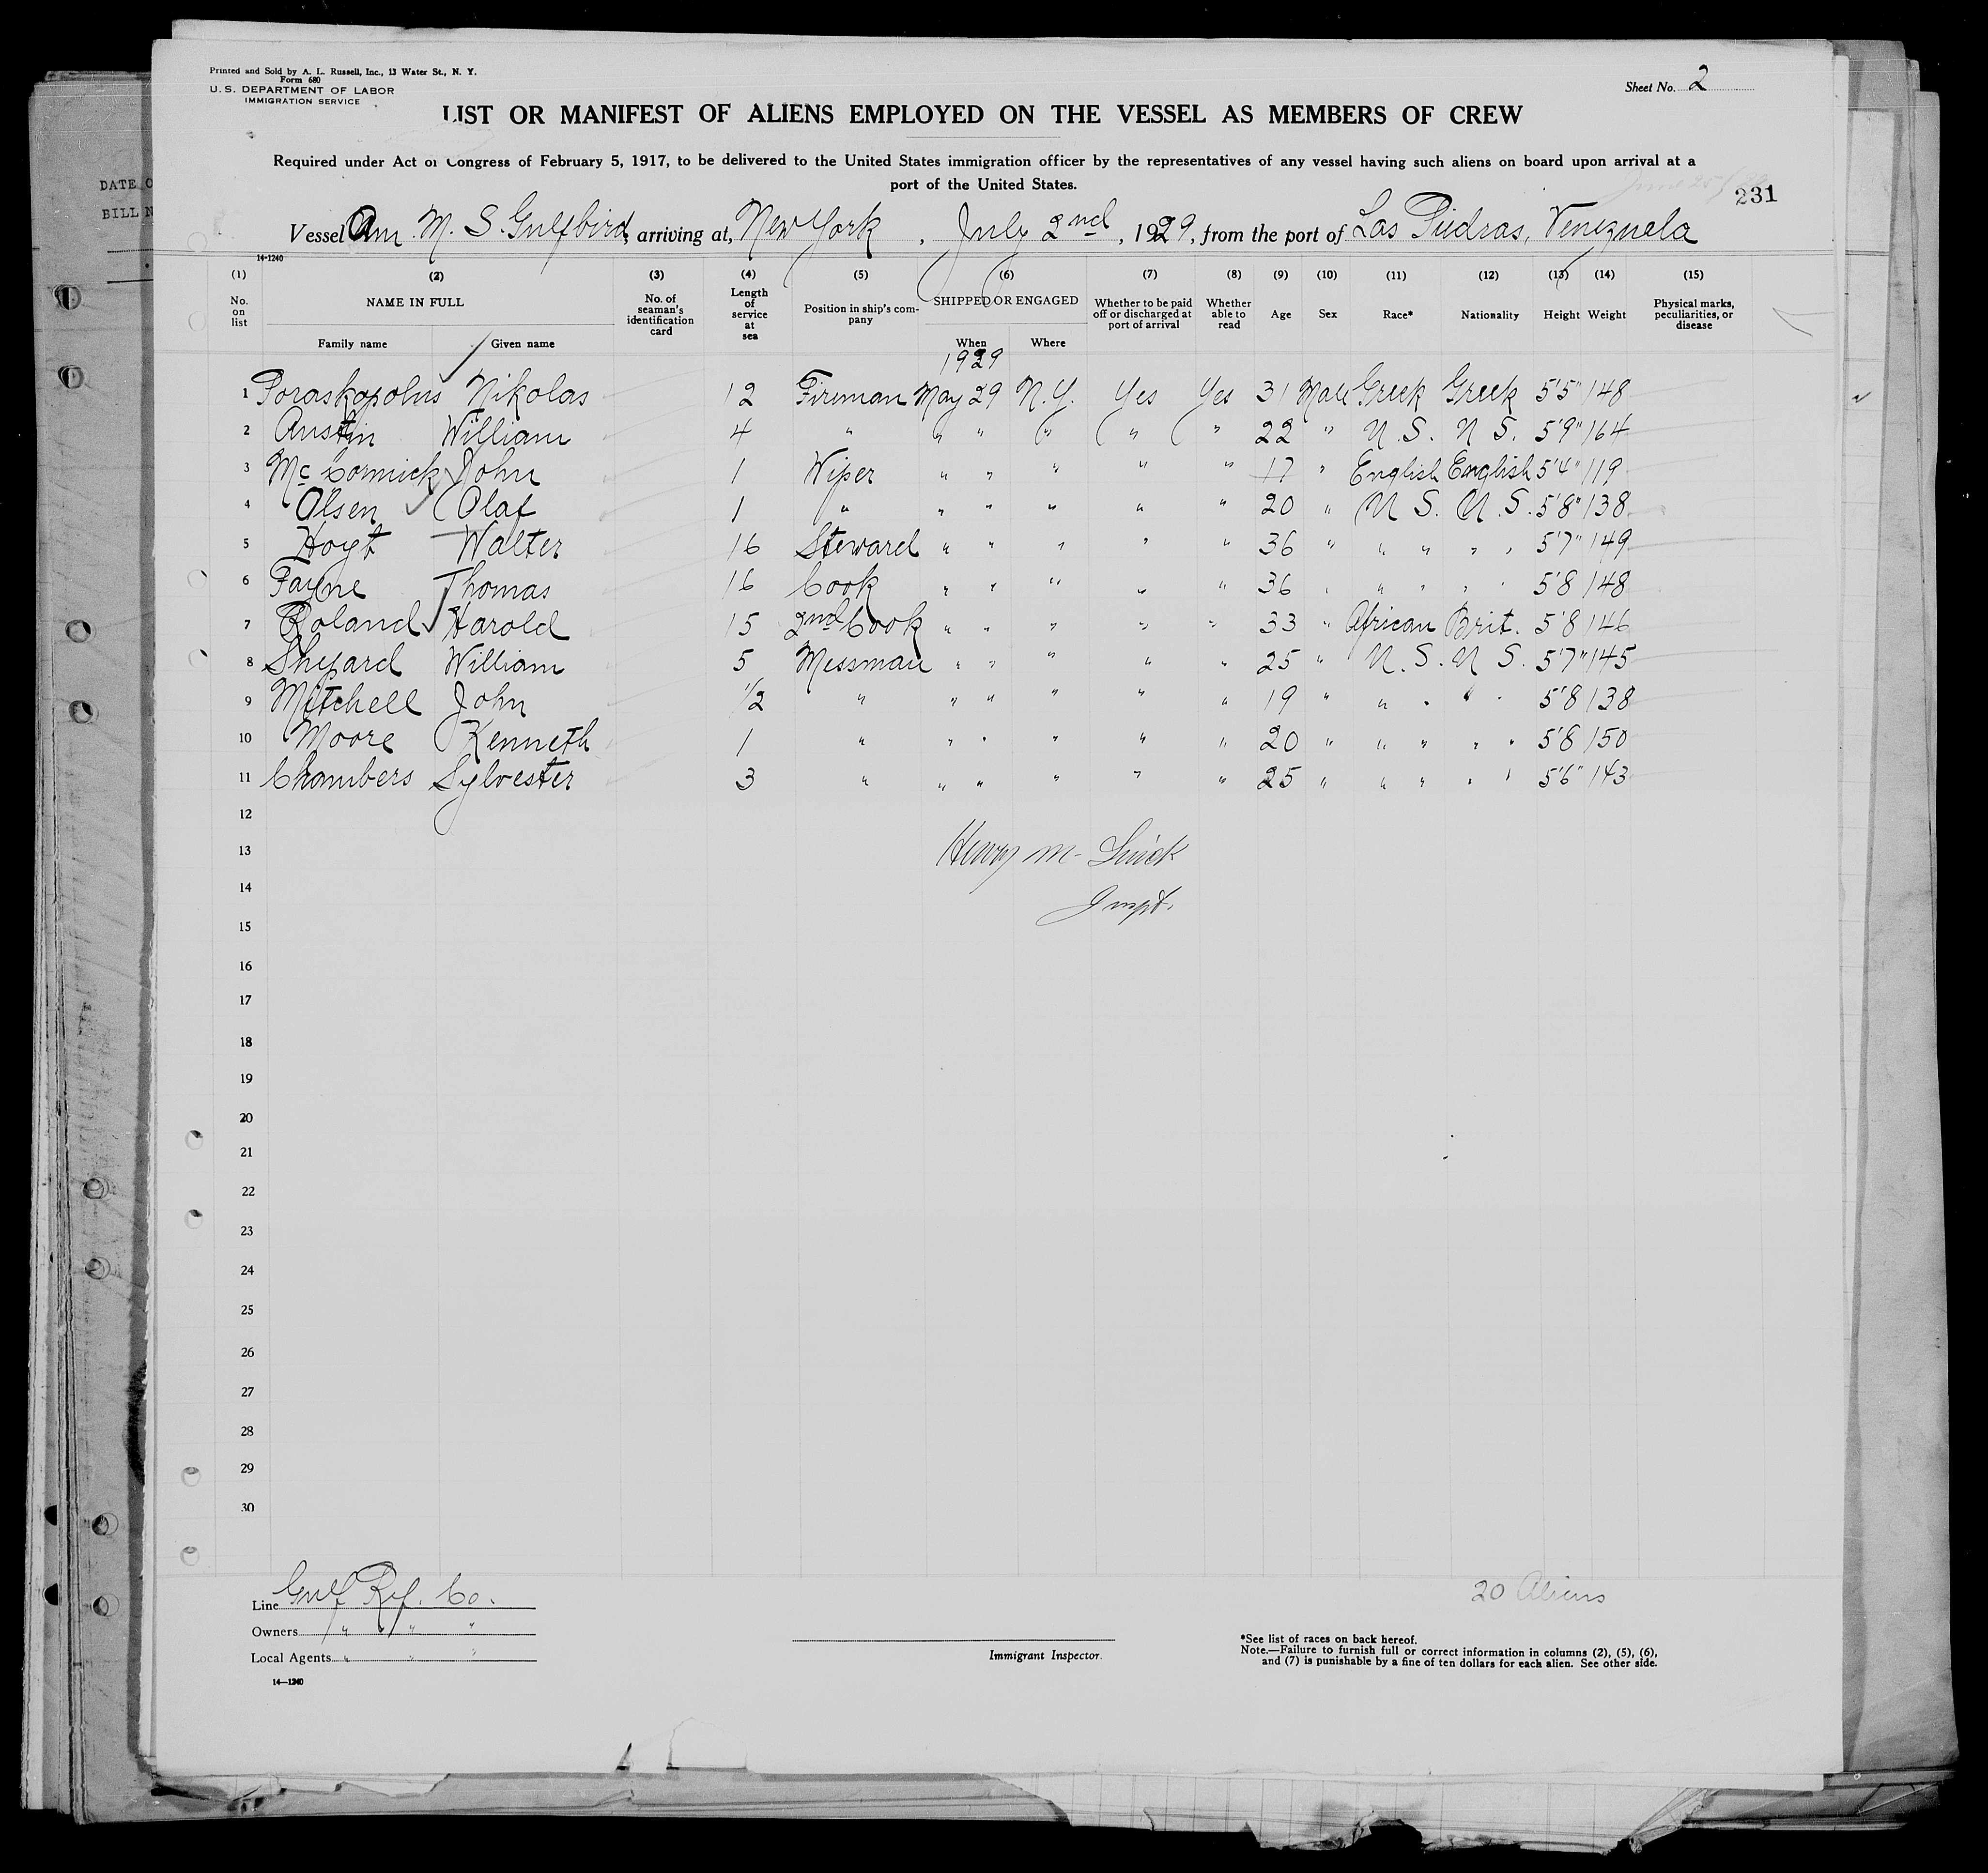 Printed and Sold by A. L. Russell, Inc., 13 Water St., N. Y.
Form 680
U. S. DEPARTMENT OF LABOR
IMMIGRATION SERVICE
Sheet No. 2
LIST OR MANIFEST OF ALIENS EMPLOYED ON THE VESSEL AS MEMBERS OF CREW
Required under Act of Congress of February 5, 1917, to be delivered to the United States immigration officer by the representatives of any vessel having such aliens on board upon arrival at a
port of the United States.
231
DATE O
BILL N
Vessel Am. M. S. Gulfbird, arriving at, New York, July 2nd, 1929, from the port of Las Piedras, Venezuela
14-1240
(1) (2) (3) (4) (5) (6) (7) (8) (9) (10) (11) (12) (13) (14) (15)
No. on list
NAME IN FULL
Family name Given name
No. of seaman's identification card
Length of service at sea
Position in ship's company
SHIPPED OR ENGAGED
When Where
Whether to be paid off or discharged at port of arrival
Whether able to read
Age Sex Race* Nationality Height Weight
Physical marks, peculiarities, or disease
1929
1 Poraskopolus Nikolas 12 Fireman May 29 N.Y. Yes Yes 31 Male Greek Greek 5'5" 148
2 Austin William 4 " " " " " " 22 " U.S. U S. 5'9" 164
3 McCormick John 1 Wiper " " " " " 17 " English English 5'4" 119
4 Olsen Olaf 1 " " " " " " 20 " U S. U.S. 5'8" 138
5 Hoyt Walter 16 Steward " " " " " 36 " " " " " 5'7" 149
6 Payne Thomas 16 Cook " " " " " 36 " " " " " 5'8 148
7 Roland Harold 15 2nd Cook " " " " " 33 " African Brit. 5'8 146
8 Shepard William 5 Messman " " " " " 25 " U.S. U S. 5'7" 145
9 Mitchell John 1/2 " " " " " " 19 " " " " " 5'8 138
10 Moore Kenneth 1 " " " " " " 20 " " " " " 5'8 150
11 Chambers Sylvester 3 " " " " " " 25 " " " " " 5'6" 143
12
13 Henry M.
14
15
Inspt.
16
17
18
19
20
21
22
23
24
25
26
27
28
29
30
Line Gulf Ref. Co.
Owners " " " "
Local Agents " " "
14—1240
Immigrant Inspector.
20 Aliens
*See list of races on back hereof.
Note.—Failure to furnish full or correct information in columns (2), (5), (6),
and (7) is punishable by a fine of ten dollars for each alien. See other side.